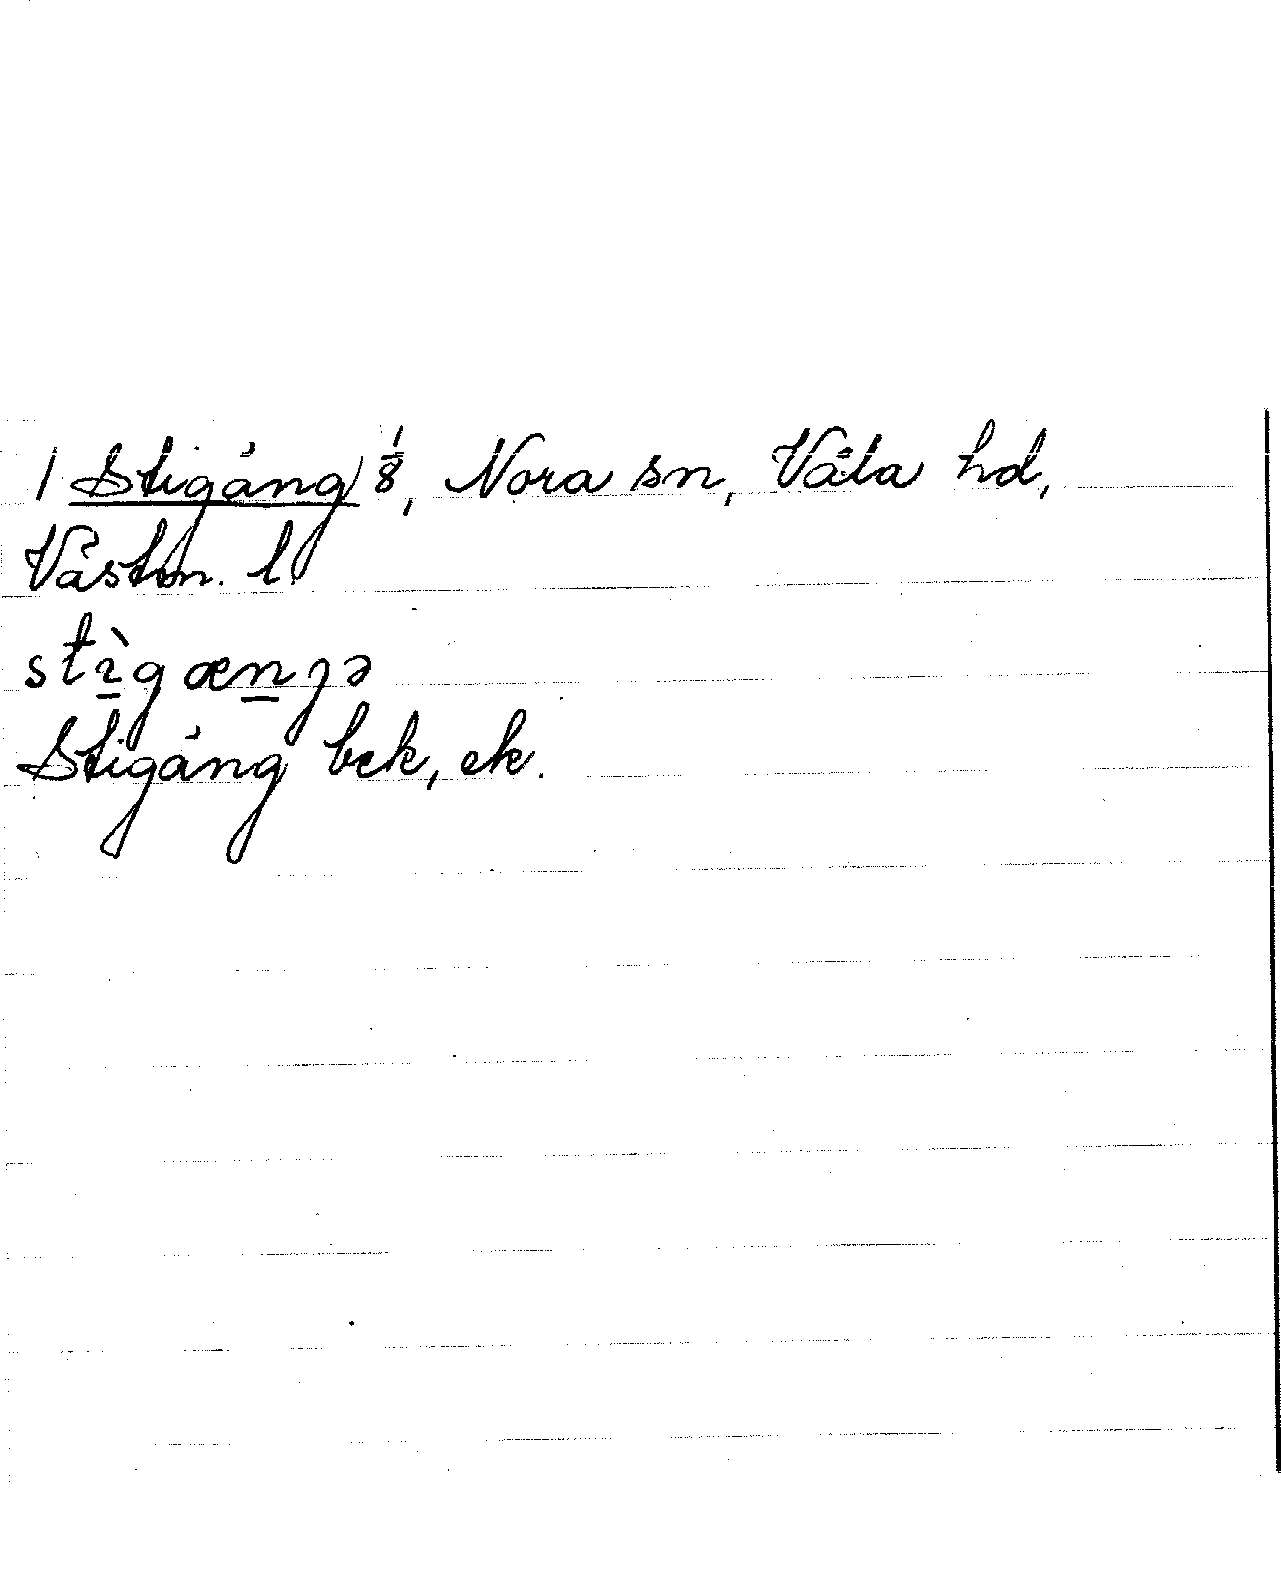 1 Stigäng 1/8, Nora sn, Våla hd,
Västm. l.
stìgænȝə
Stigäng bek, ek.